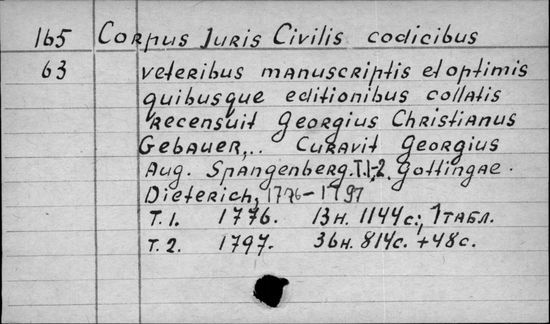 165 Corpus Juris Civilis codicibus
63 veteribus manuscriptis et optimis
quibusque editionibus collatis
recensuit Georgius Christianus
Gebauer,.. Curavit Georgius
Aug. Spangenberg. T.1-2. Gottingae.
Dieterich, 1776-1797
Т.1. 1776. 13н. 1144с.; 1табл.
Т.2. 1797. 36н. 814с. +48с.